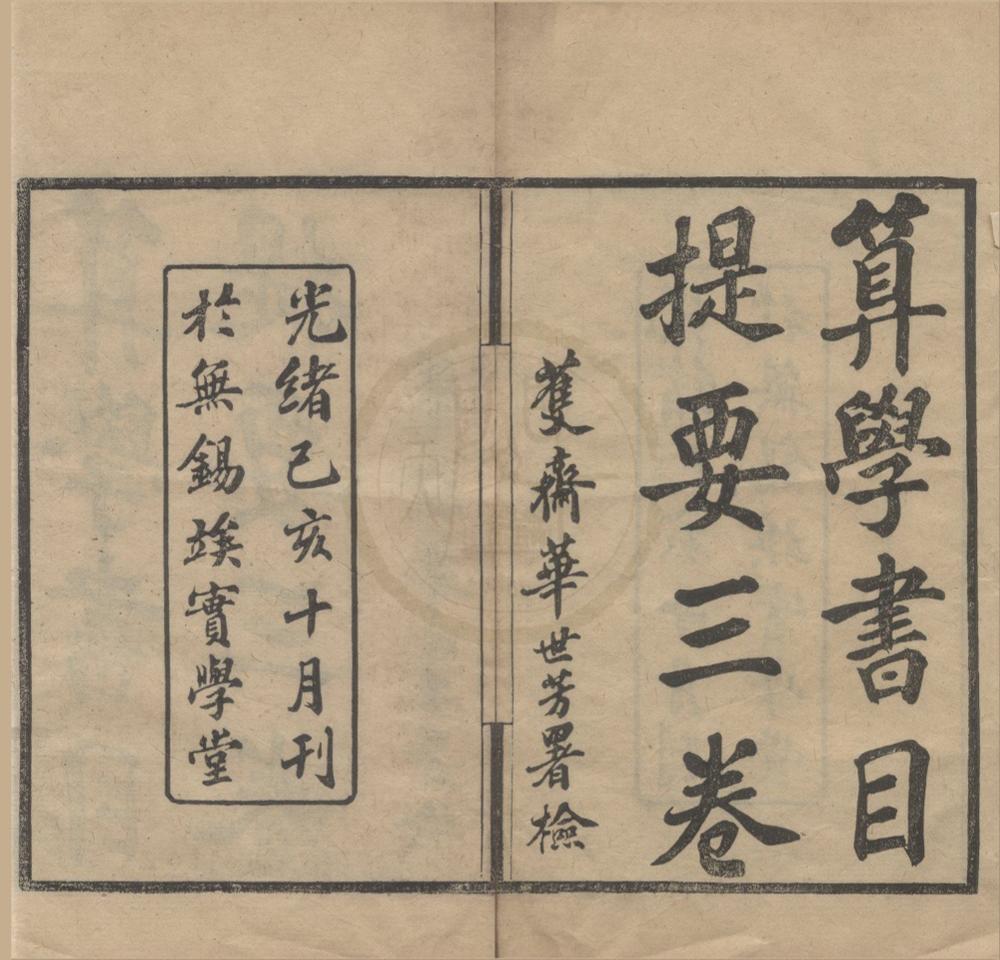 算學書目
提要三卷
蒦齋華世芳署檢
光緒己亥十月刊
於無錫竢實學堂